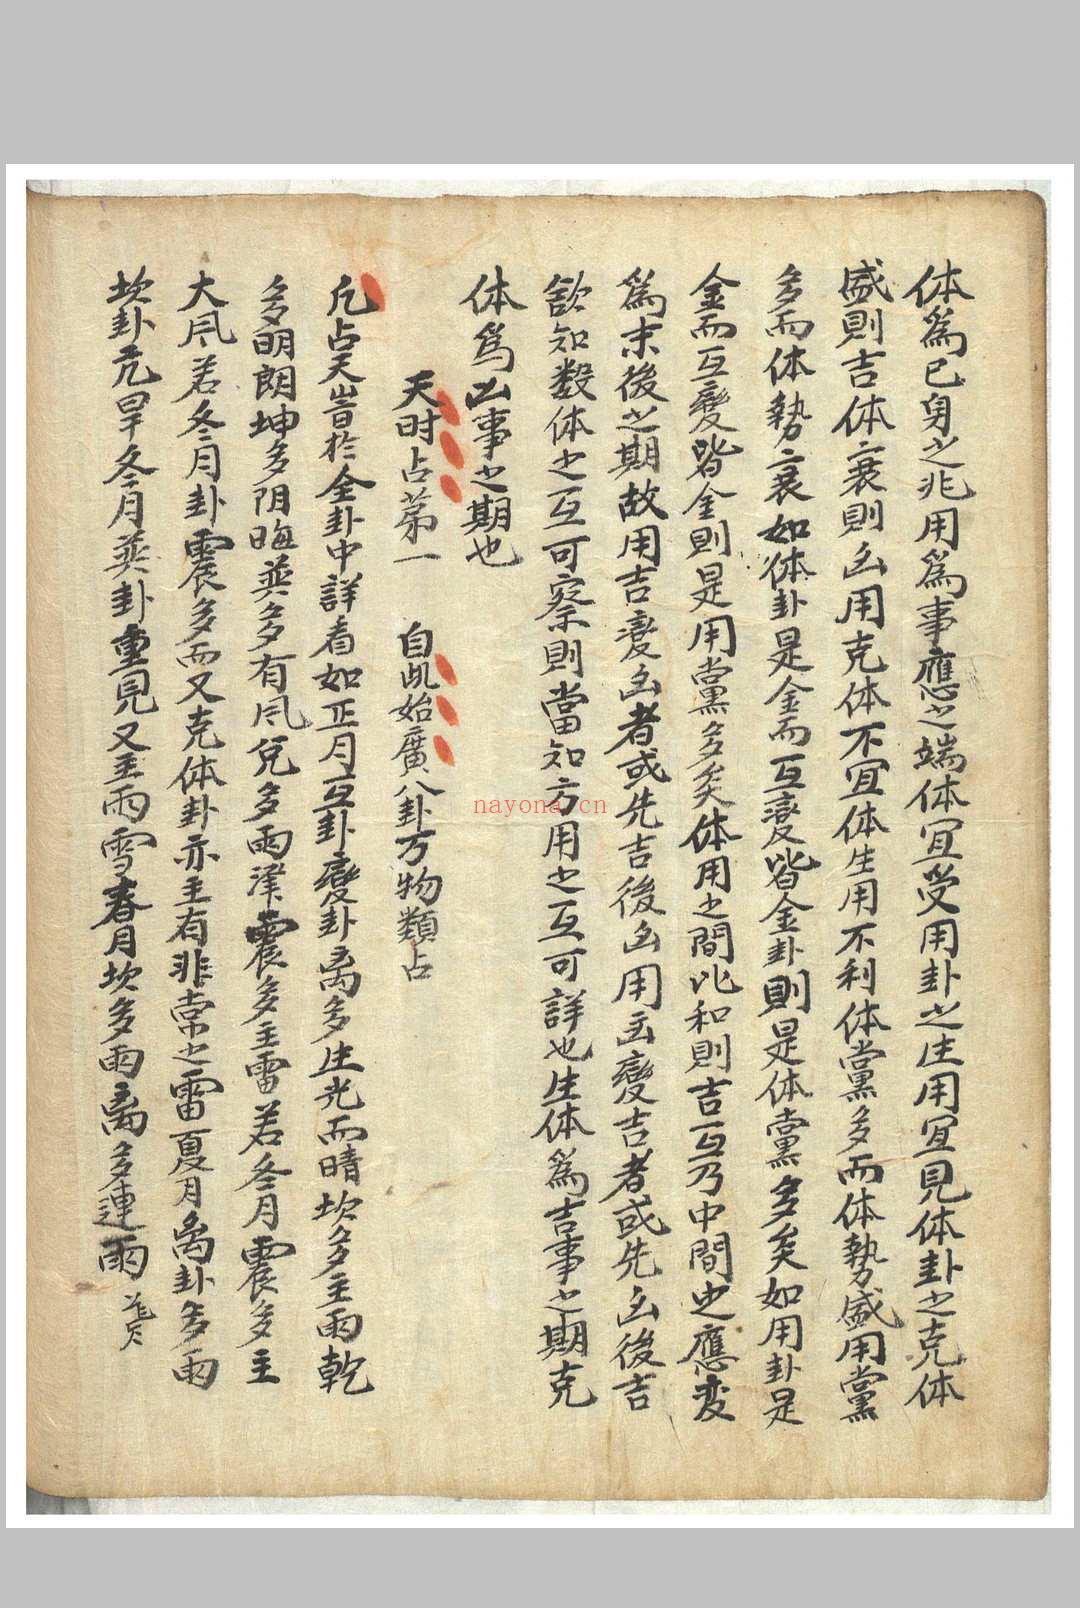 体爲已身之兆用爲事應之端体宜受用卦之生用宜見体卦之克体
盛則吉体衰則凶用克体不宜体生用不利体黨多而体勢盛用黨
多而体勢衰如体卦是金而互變皆金卦則是体黨多矣如用卦是
金而互變皆金則是用黨多矣体用之間比和則吉互乃中間之應变
爲末後之期故用吉變凶者或先吉後凶用凶變吉者或先凶後吉
欲知数体之互可察則當知方用之互可詳也生体爲吉事之期克
体爲凶事之期也
天时占苐一 自此始廣八卦万物類占
凡占天旹於全卦中詳看如正月互卦變卦离多生光而晴坎多主雨乾
多明朗坤多阴晦巽多有风兌多雨澤震多主雷若冬月震多主
大风若冬月卦震多而又克体卦亦主有非常之雷夏月离卦多雨
坎卦亢旱冬月巽卦重見又主雨雪春月坎多雨离多連雨
nayona.cn